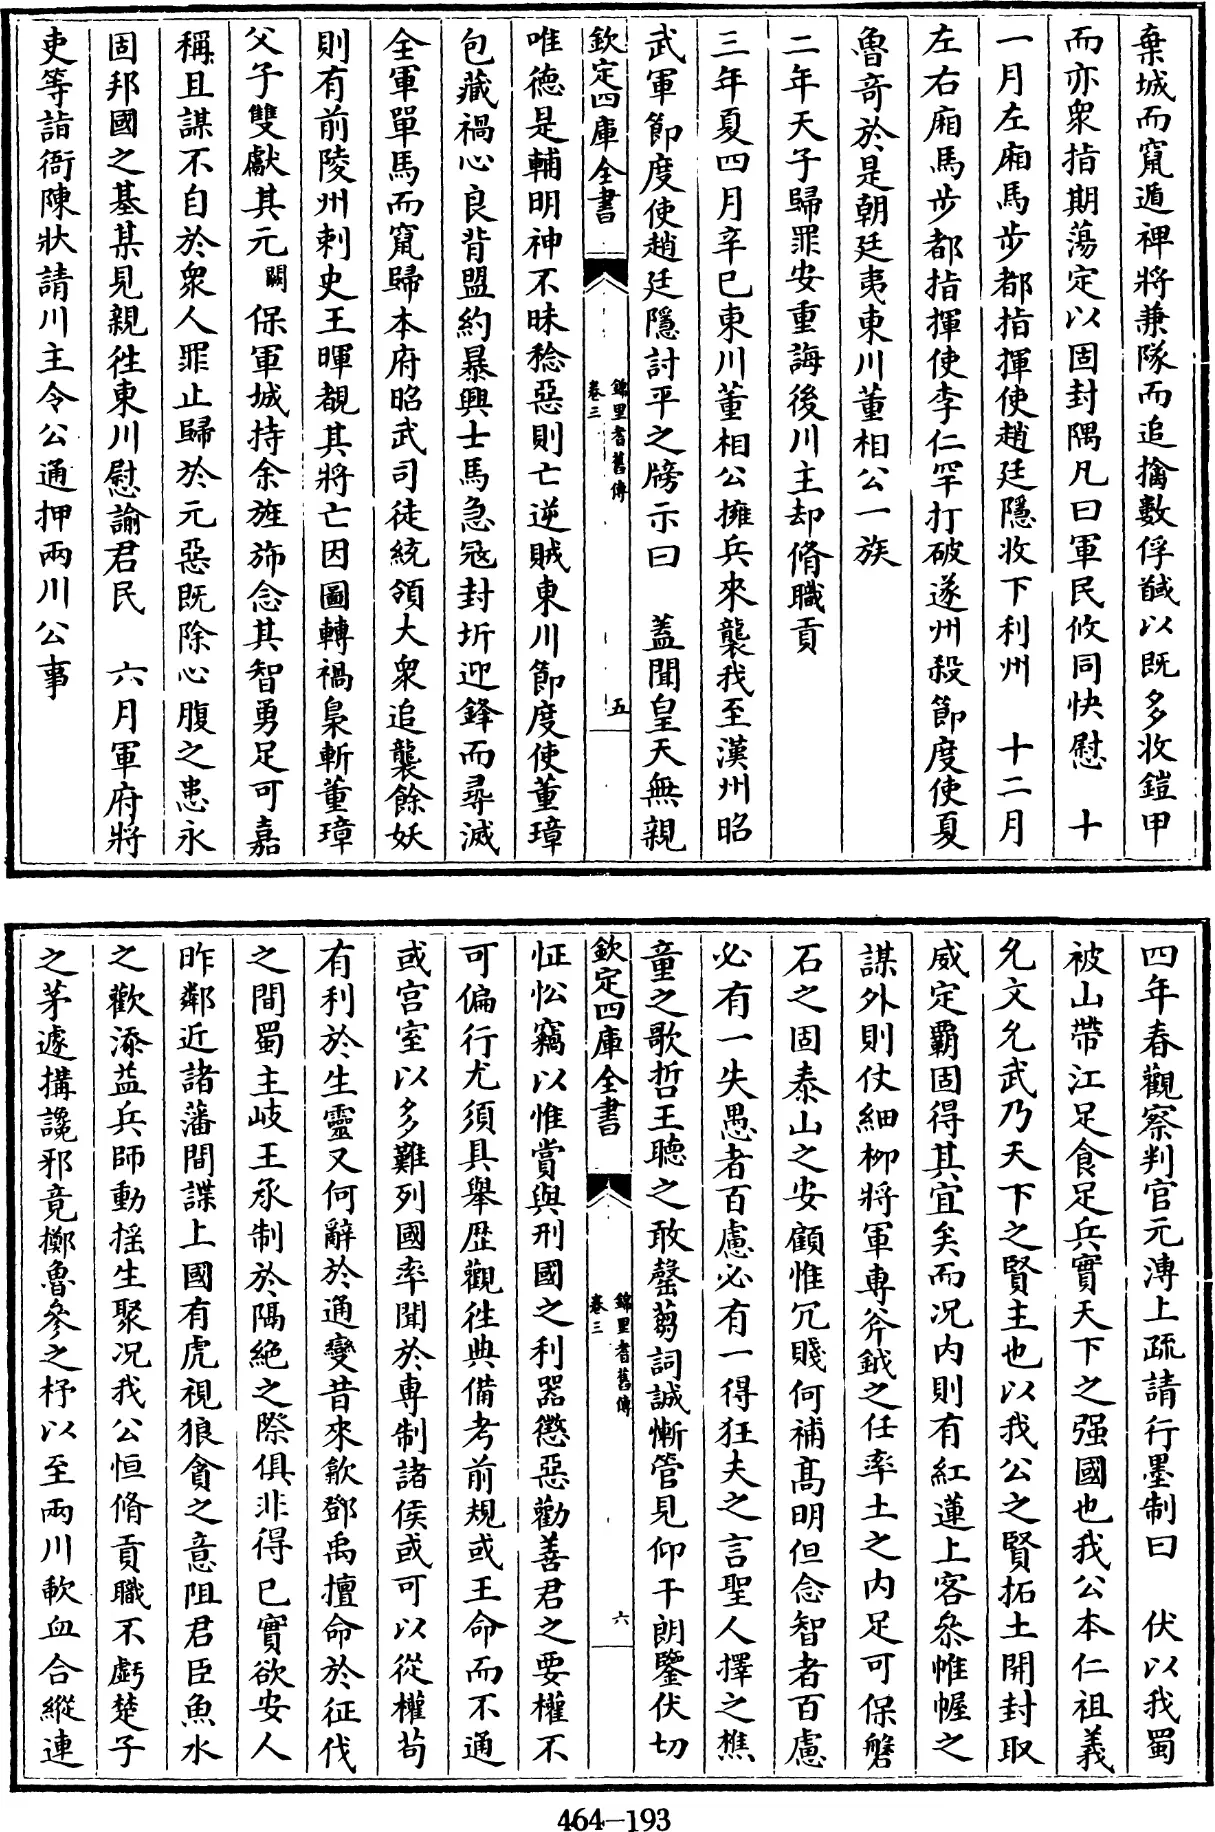 棄城而竄遁裨將兼隊而追擒數俘馘以既多收鎧甲
而亦衆指期蕩定以固封隅凡曰軍民攸同快慰　十
一月左廂馬步都指揮使趙廷隱收下利州　十二月
左右廂馬步都指揮使李仁罕打破遂州殺節度使夏
魯奇於是朝廷夷東川董相公一族
二年天子歸罪安重誨後川主却脩職貢
三年夏四月辛巳東川董相公擁兵來襲我至漢州昭
武軍節度使趙廷隱討平之牓示曰　蓋聞皇天無親
欽定四庫全書　錦里耆舊傳　卷三　五
唯德是輔明神不昧稔惡則亡逆賊東川節度使董璋
包藏禍心良背盟約暴興士馬急寇封圻迎鋒而尋滅
全軍單馬而竄歸本府昭武司徒統領大衆追襲餘妖
則有前陵州刺史王暉覩其將亡因圖轉禍梟斬董璋
父子雙獻其元闕保軍城持余旌斾念其智勇足可嘉
稱且謀不自於衆人罪止歸於元惡既除心腹之患永
固邦國之基某見親往東川慰諭君民　六月軍府將
吏等詣衙陳狀請川主令公通押兩川公事
四年春觀察判官元溥上疏請行墨制曰　伏以我蜀
被山帶江足食足兵實天下之强國也我公本仁祖義
允文允武乃天下之賢主也以我公之賢拓土開封取
威定霸固得其宜矣而况内則有紅蓮上客叅帷幄之
謀外則仗細柳將軍專斧鉞之任率土之内足可保磐
石之固泰山之安顧惟冗賤何補髙明但念智者百慮
必有一失愚者百慮必有一得狂夫之言聖人擇之樵
童之歌哲王聽之敢罄蒭詞誠慚管見仰干朗鑒伏切
欽定四庫全書　錦里耆舊傳　卷三　六
怔忪竊以惟賞與刑國之利器懲惡勸善君之要權不
可偏行尤須具舉歴觀徃典備考前規或王命而不通
或宫室以多難列國率聞於專制諸侯或可以從權茍
有利於生靈又何辭於通變昔來歙鄧禹擅命於征伐
之間蜀主岐王承制於隔絶之際俱非得已實欲安人
昨鄰近諸藩間諜上國有虎視狼貪之意阻君臣魚水
之歡添益兵師動揺生聚况我公恒脩貢職不虧楚子
之茅遽搆讒邪竟擲魯參之杼以至兩川歃血合縱連
464—193